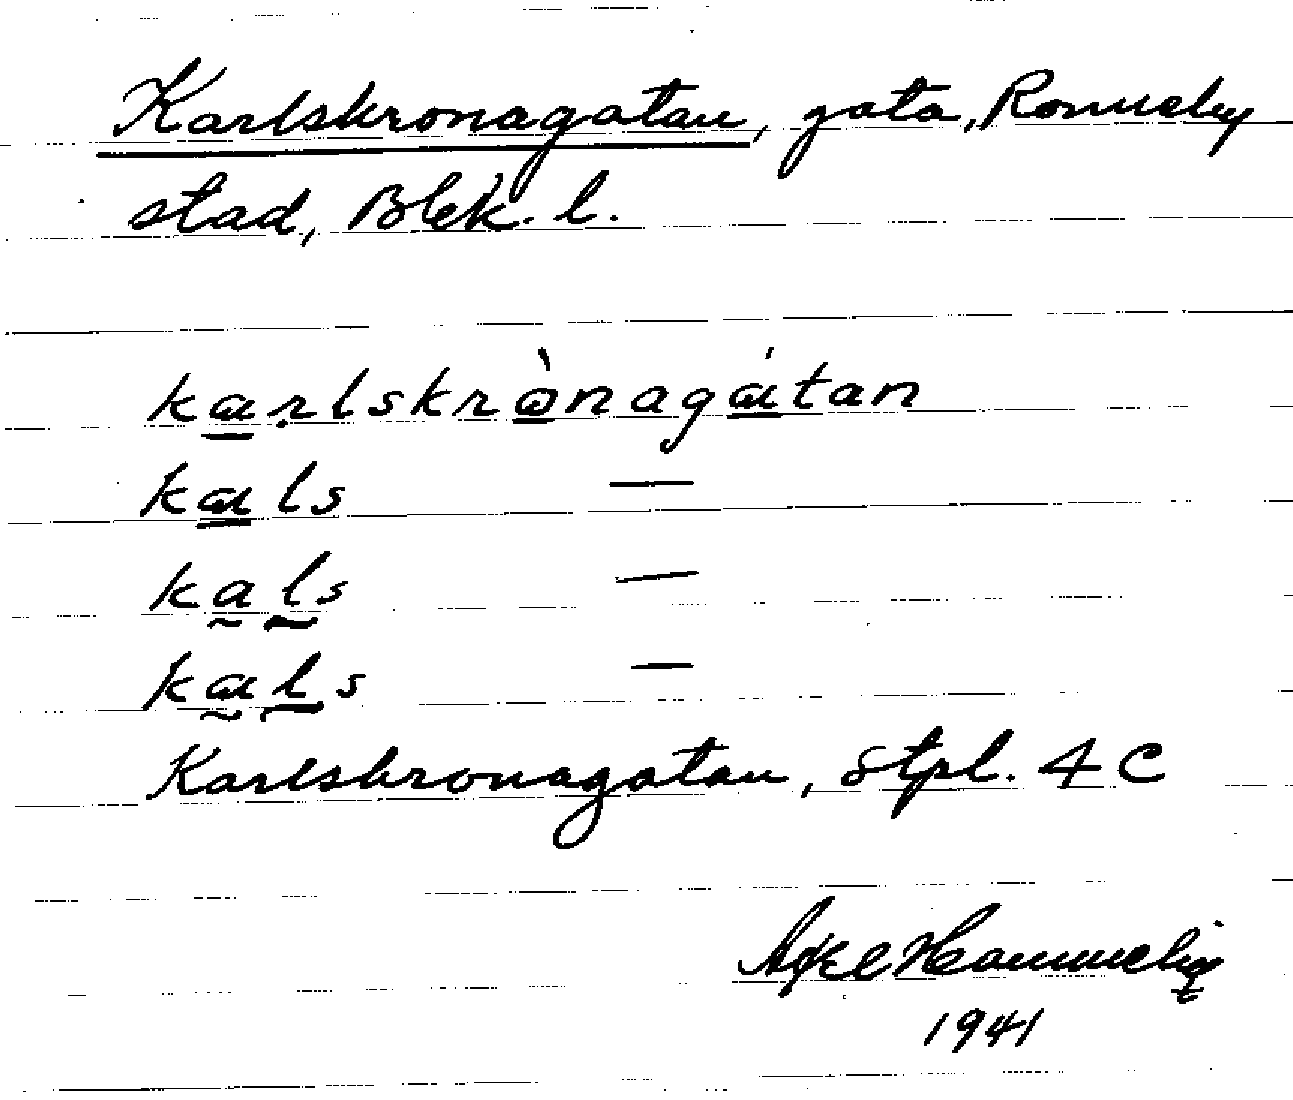 Karlskronagatan, gata, Ronneby
stad, Blek. l.
karlskrònagátan
kals —
kals —
kals —
Karlskronagatan, Stpl. 4 C
Åke Hammelig
1941